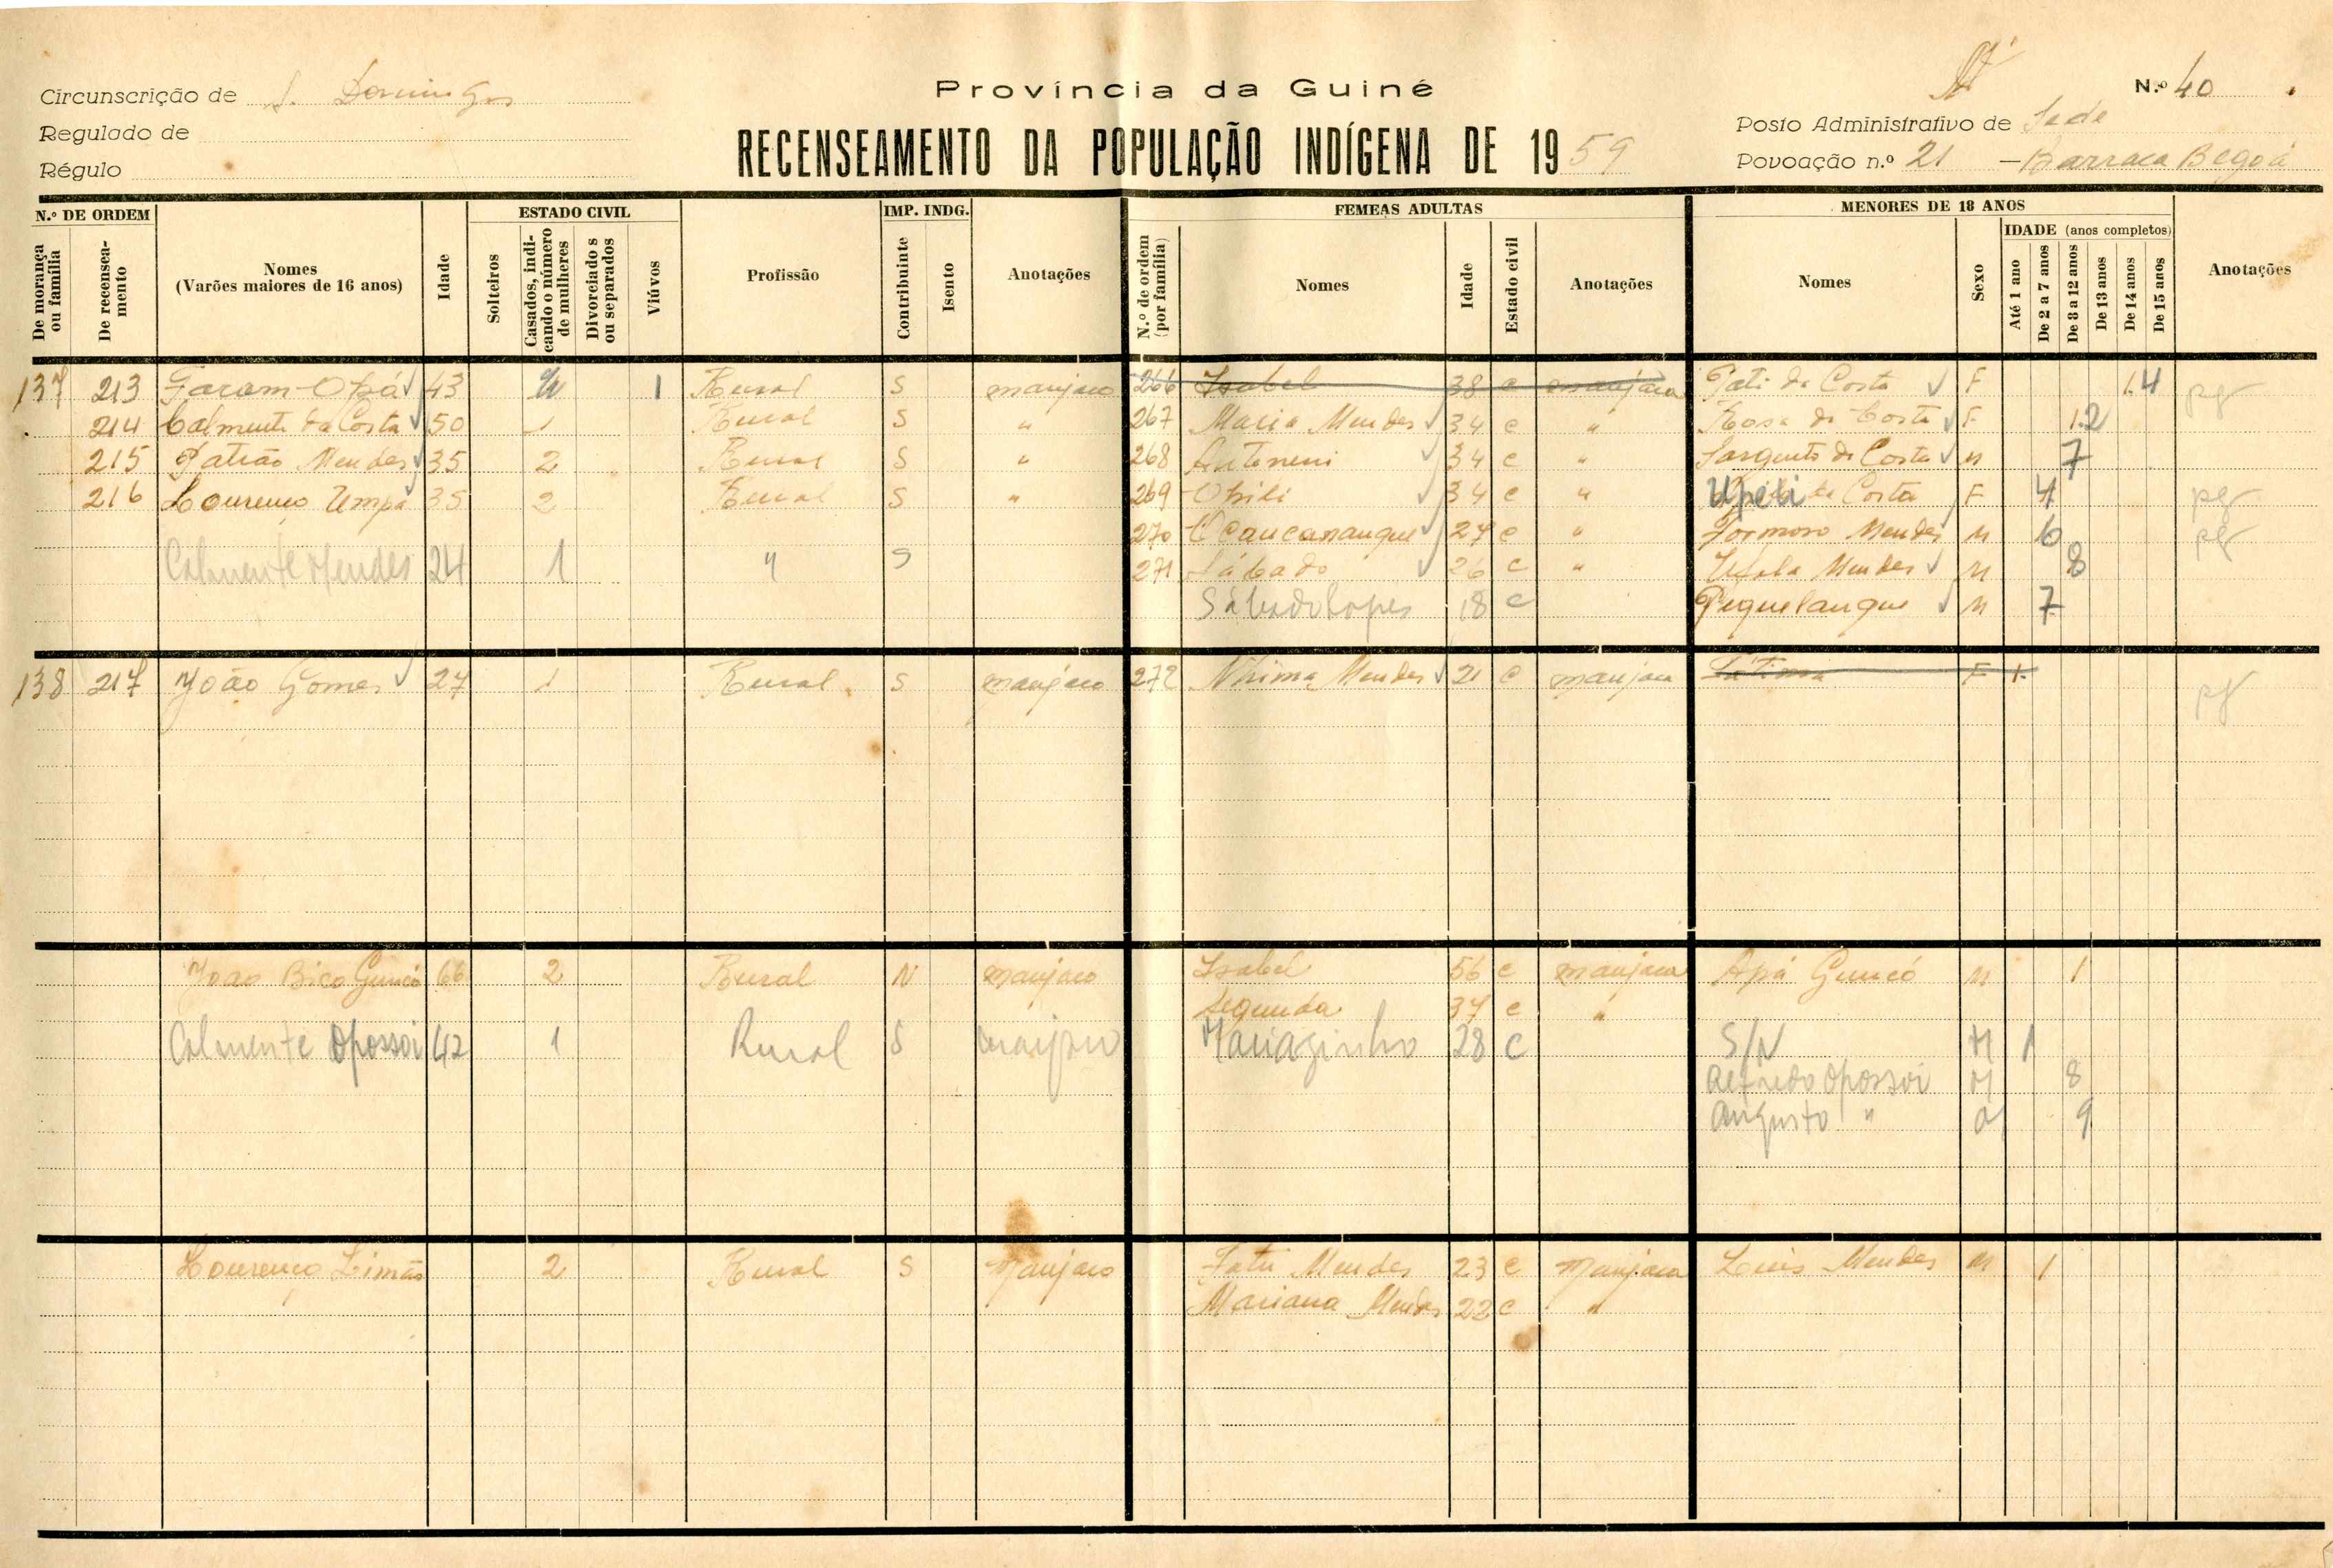 Província da Guiné
Circunscrição de S. Domingos
N.º 40
Regulado de
RECENSEAMENTO DA POPULAÇÃO INDÍGENA DE 1959
Posto Administrativo de Sede
Régulo
Povoação n.º 21 — Barraca Begoá
N.º DE ORDEM
De morança ou família
De recenseamento
Nomes
(Varões maiores de 16 anos)
Idade
ESTADO CIVIL
Solteiros
Casados, indicando o número de mulheres
Divorciados ou separados
Viúvos
Profissão
IMP. INDG.
Contribuinte
Isento
Anotações
FEMEAS ADULTAS
N.º de ordem (por família)
Nomes
Idade
Estado civil
Anotações
MENORES DE 18 ANOS
Nomes
Sexo
IDADE (anos completos)
Até 1 ano
De 2 a 7 anos
De 8 a 12 anos
De 13 anos
De 14 anos
De 15 anos
Anotações
137 213 43 1 Rural S manjaco 266 Isabel 38 c manjaca Pati da Costa F 14 pg
214 Calmente da Costa 50 1 Rural S " 267 Maria Mendes 34 c " Rosa da Costa F 12
215 Patrão Mendes 35 2 Rural S " 268 Antoneni 34 c " Sargento da Costa M 7
216 Lourenço Umpa 35 2 Rural S " 269 34 c " Upili da Costa F 4 pg
270 Ocaucananque 27 c " Formoso Mendes M 6 pg
Calmente Mendes 24 1 " S 271 Sábado 26 c " Mendes M 8
Sábado Lopes 18 c Piquelanque M 7
138 217 João Gomes 27 1 Rural S manjaco 272 Nhima Mendes 21 c manjaca F 1 pg
João Bico Guncó 66 2 Rural N manjaco Isabel 56 c manjaca Apá Guncó M 1
Segunda 37 c "
Calmente Opossoi 42 1 Rural S manjaco Mariazinha 28 C S/N M 1
Alfredo Opossoi M 8
Augusto " M 9
Lourenço Limão 2 Rural S Manjaco Fatu Mendes 23 c Manjaca Luis Mendes M 1
Mariana Mendes 22 c "